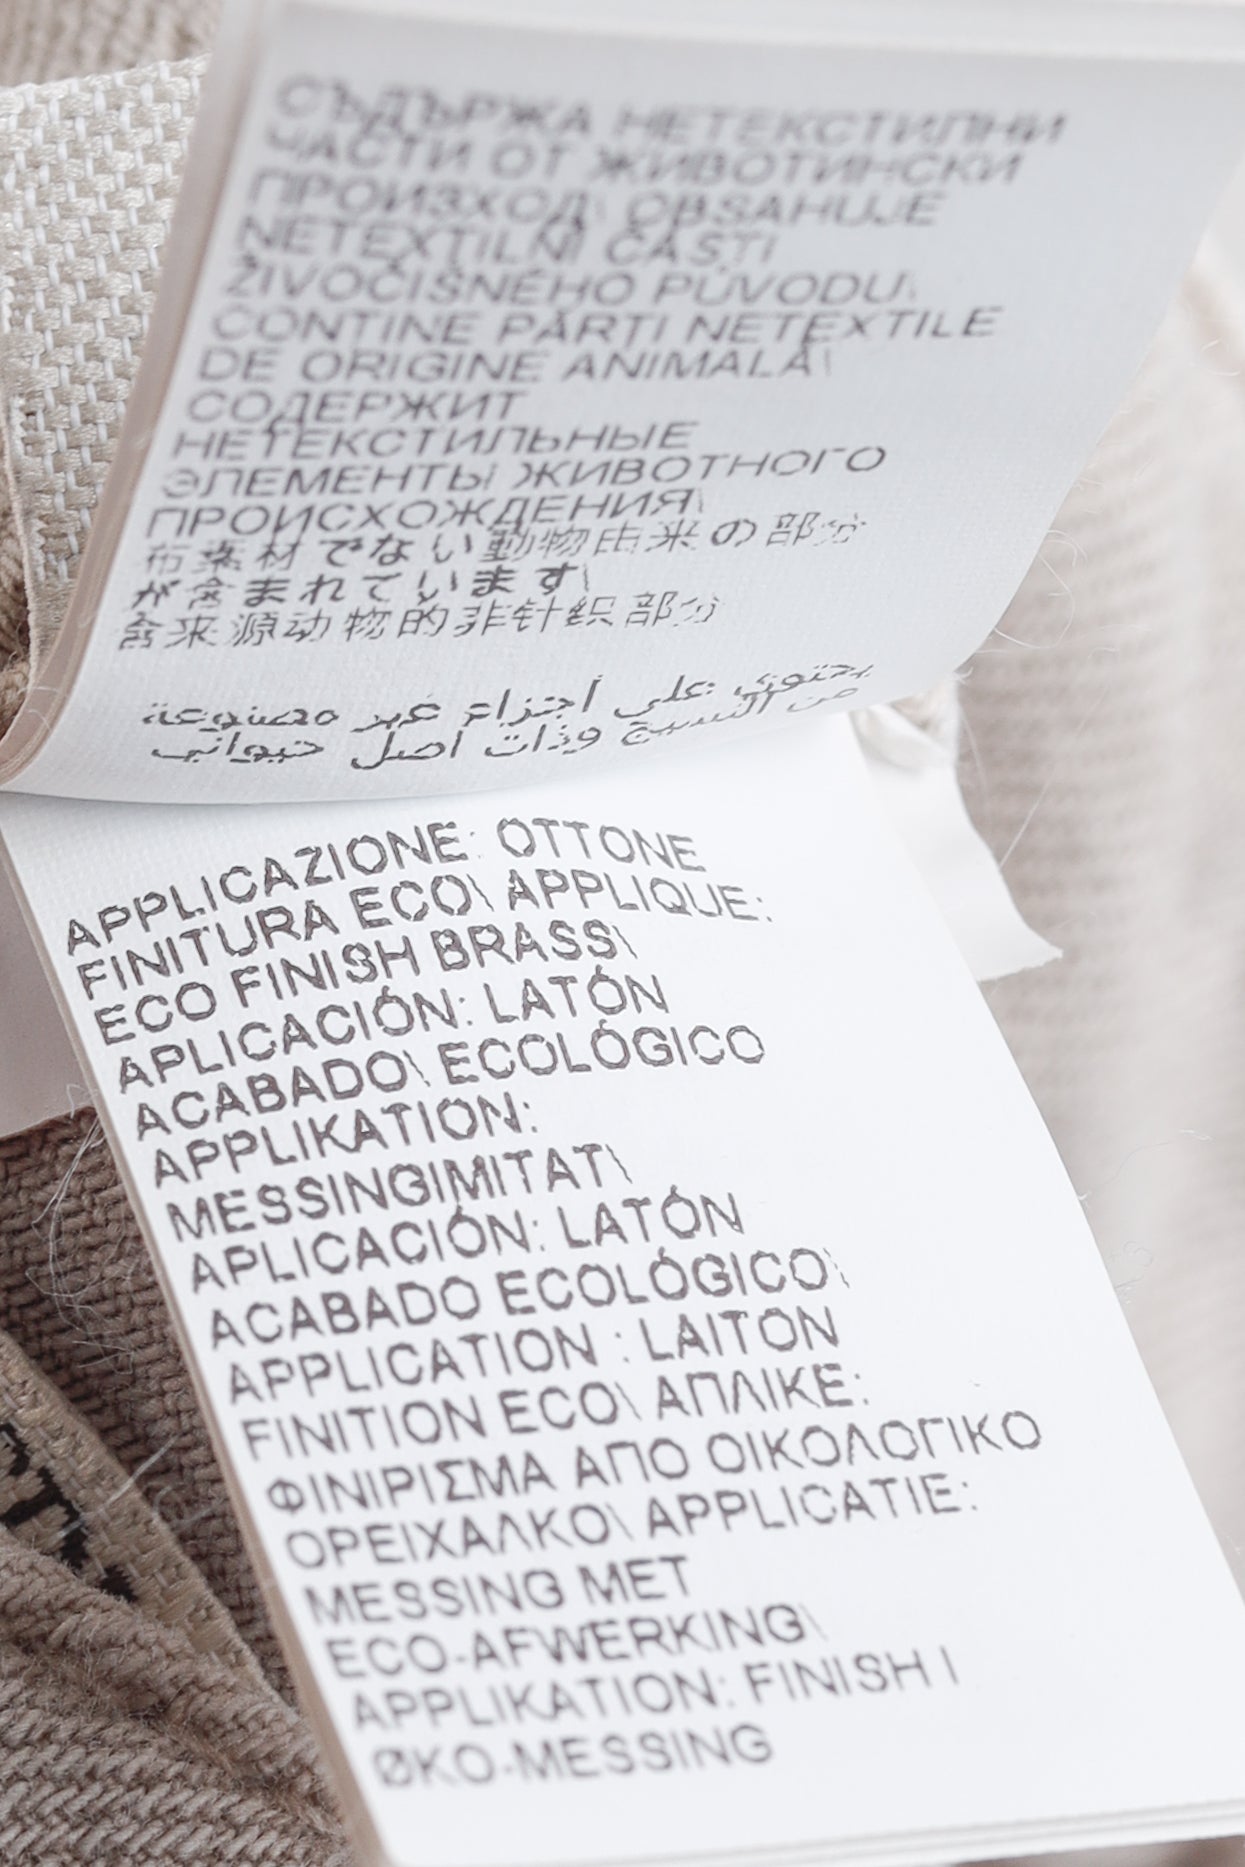 СЪДЪРЖА НЕТЕКСТИЛНИ
ЧАСТИ ОТ ЖИВОТИНСКИ
ПРОИЗХОД\ OBSAHUJE
NETEXTILNÍ ČÁSTI
ŽIVOČIŠNÉHO PŮVODU\
CONTINE PĂRTI NETEXTILE
DE ORIGINE ANIMALĂ\
СОДЕРЖИТ
НЕТЕКСТИЛЬНЫЕ
ЭЛЕМЕНТЫ ЖИВОТНОГО
ПРОИСХОЖДЕНИЯ\
布素材でない動物由来の部分
が含まれています\
含来源动物的非针织部分
يحتوي على أجزاء غير مصنوعة
من النسيج وذات اصل حيواني
APPLICAZIONE: OTTONE
FINITURA ECO\ APPLIQUE:
ECO FINISH BRASS\
APLICACIÓN: LATÓN
ACABADO\ ECOLÓGICO
APPLIKATION:
MESSINGIMITAT\
APLICACIÓN: LATÓN
ACABADO ECOLÓGICO\
APPLICATION : LAITON
FINITION ECO\ ΑΠΛΙΚΕ:
ΦΙΝΙΡΙΣΜΑ ΑΠΟ ΟΙΚΟΛΟΓΙΚΟ
ΟΡΕΙΧΑΛΚΟ\ APPLICATIE:
MESSING MET
ECO-AFWERKING\
APPLIKATION: FINISH I
ØKO-MESSING